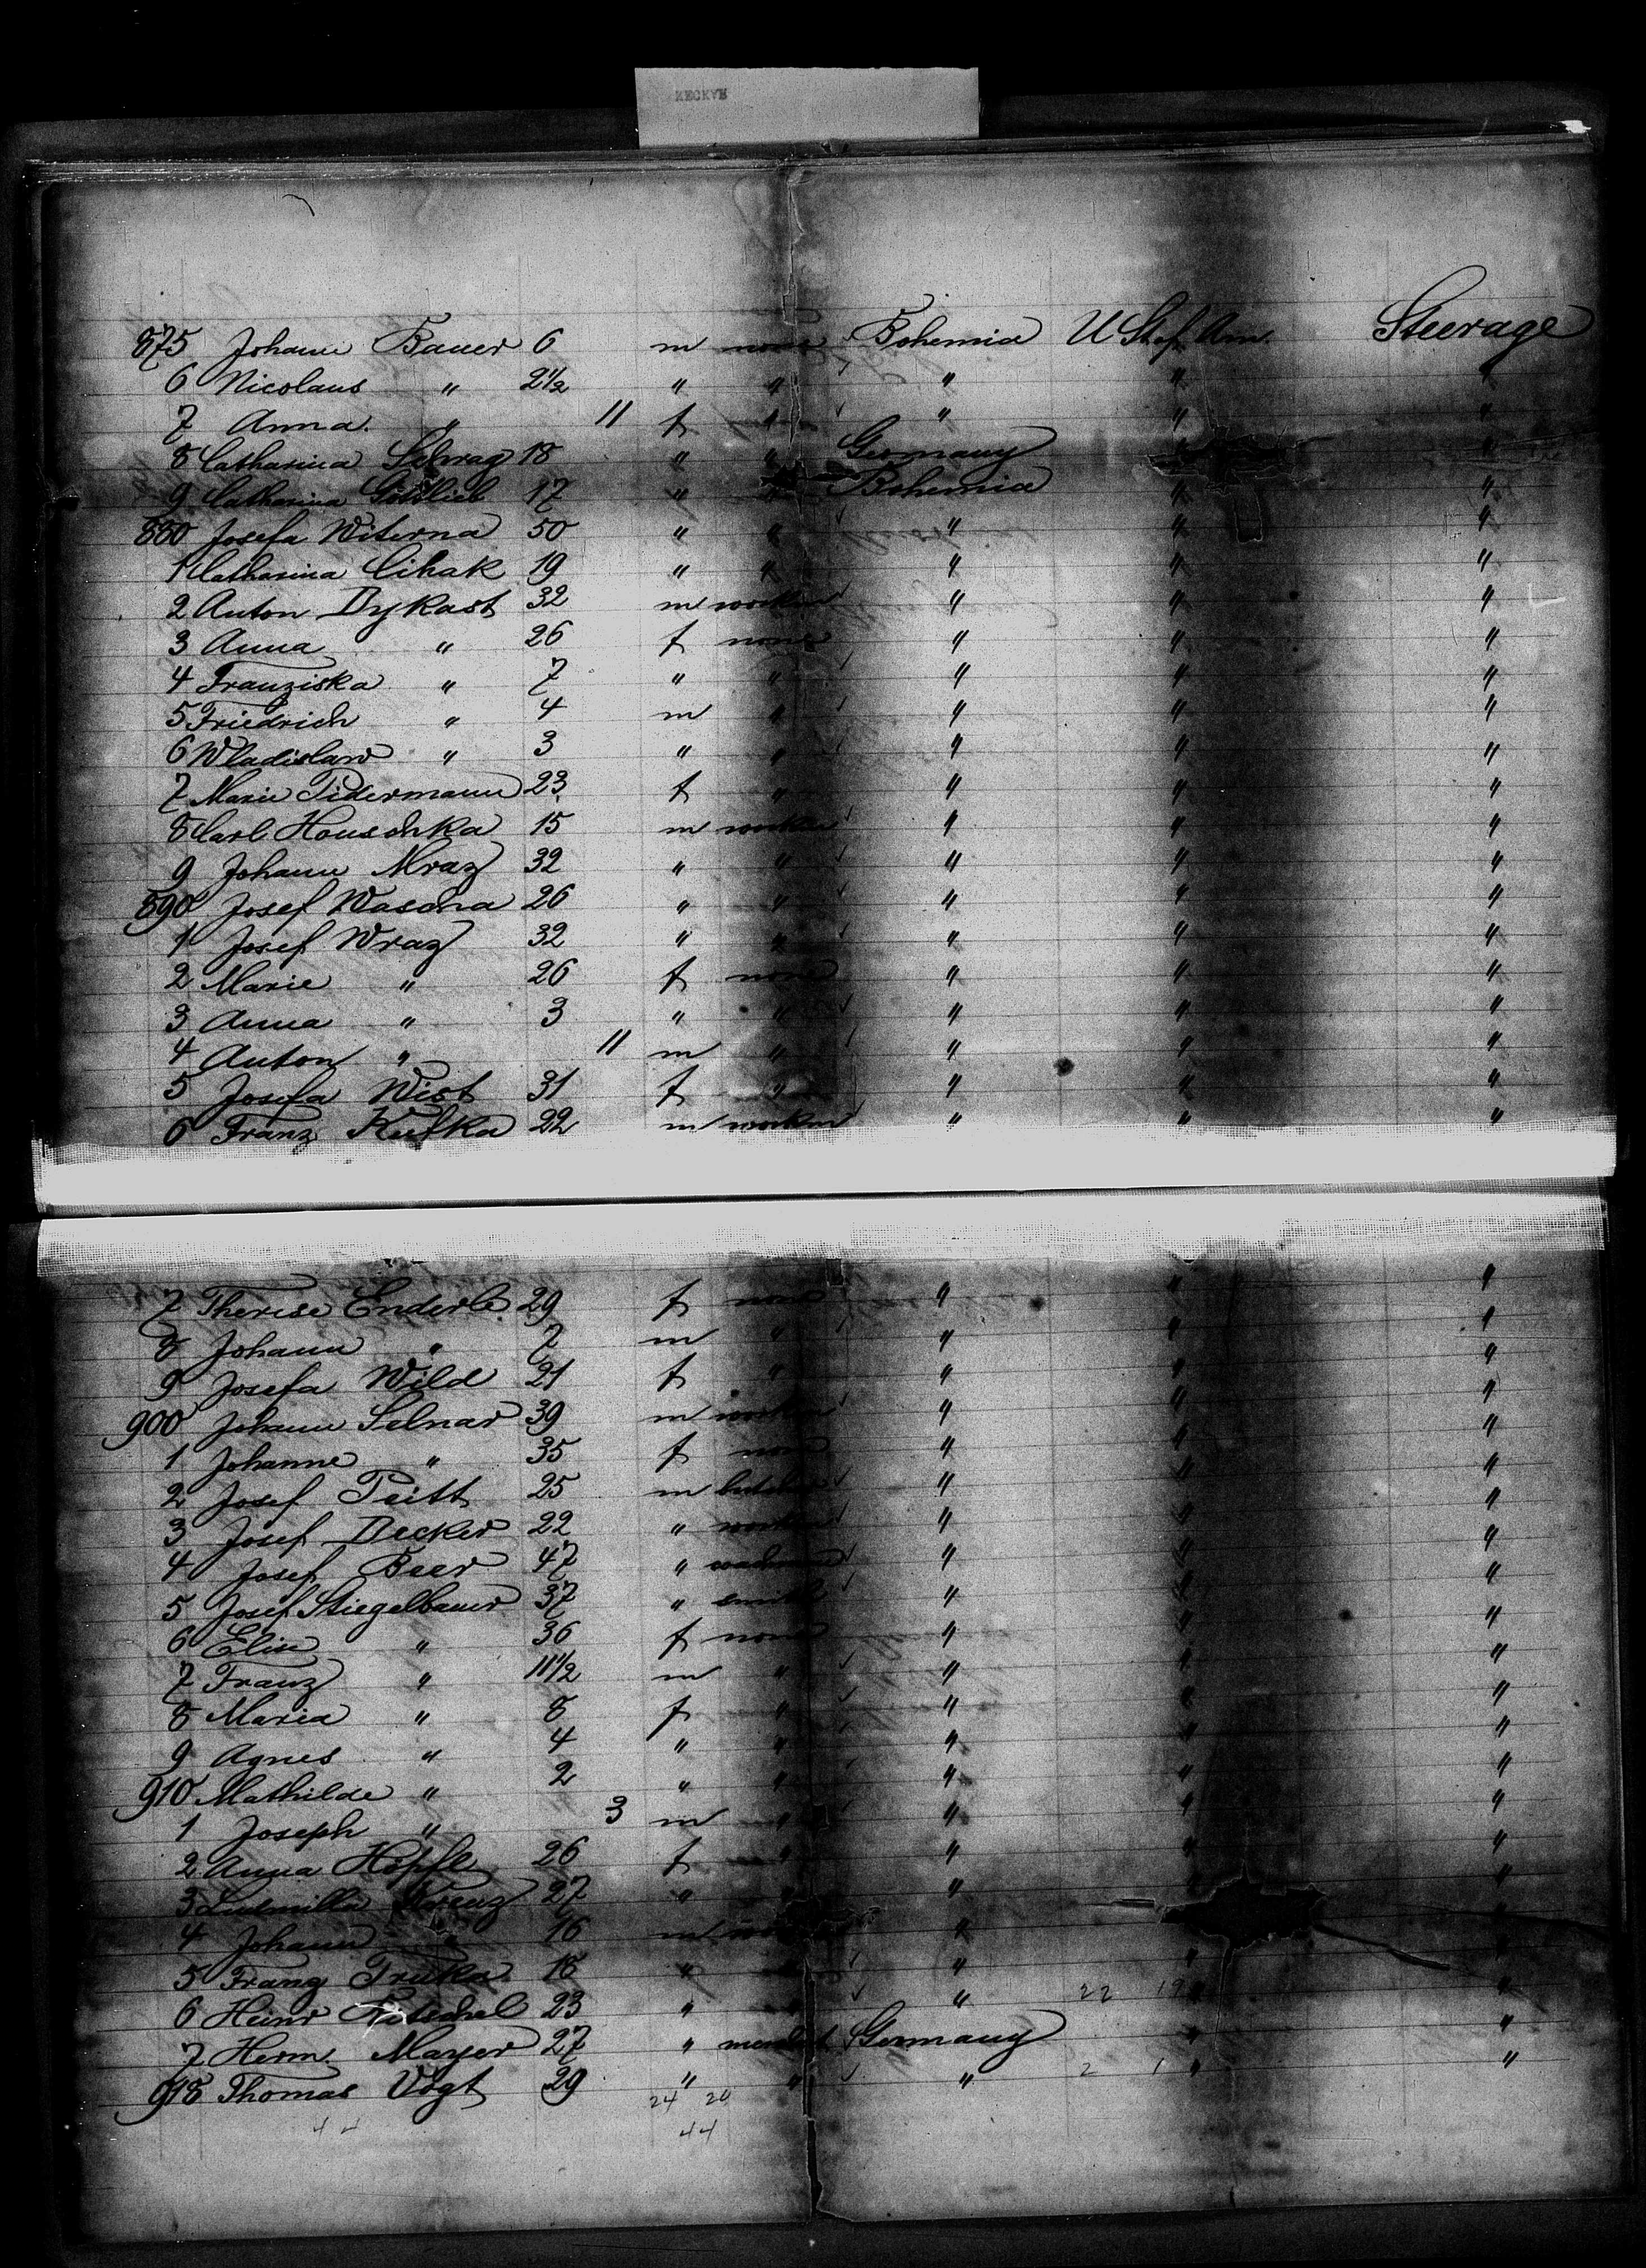 875 Johann Bauer 6 m none Bohemia U St of Am. Steerage
6 Nicolaus " 2 1/2 " " " " "
7 Anna. " 11 f " " " "
8 Catharina 18 " " Germany " "
9 Catharina Gottlieb 17 " " Bohemia " "
880 Josefa Witerna 50 " " " " "
1 Catharina Cihak 19 " " " " "
2 Anton Dykast 32 m worker " " "
3 Anna " 26 f none " " "
4 Franziska " 7 " " " " "
5 Friedrich " 4 m " " " "
6 Wladislaw " 3 " " " " "
7 Marie Pidermann 23 f " " " "
8 Carl Houschka 15 m worker " " "
9 Johann Mraz 32 " " " " "
890 Josef Wascha 26 " " " " "
1 Josef Wraz 32 " " " " "
2 Marie " 26 f none " " "
3 Anna " 3 " " " " "
4 Anton " 11 m " " " "
5 Josefa Wist 31 f " " " "
6 Franz Kufka 22 m worker " " "
7 Therese Enderle 29 f none " " "
8 Johann " 7 m " " " "
9 Josefa Wild 21 f " " " "
900 Johann Selnar 39 m worker " " "
1 Johanne " 35 f none " " "
2 Josef Peitt 25 m butcher " " "
3 Josef Decker 22 " worker " " "
4 Josef Beer 47 " " " "
5 Josef Stiegelbauer 37 " smith " " "
6 Elise " 36 f none " " "
7 Franz " 11 1/2 m " " " "
8 Maria " 8 f " " " "
9 Agnes " 4 " " " " "
910 Mathilde " 2 " " " " "
1 Joseph " 3 m " " " "
2 Anna Höpfl 26 f " " " "
3 Ludmilla 27 " " " " "
4 Johann " 16 m " " "
5 Franz Truka 18 " " " " "
6 Heinr 23 " " " 22 19 " "
7 Herm. Mayer 27 " Germany " "
918 Thomas Vogt 29 " " " 2 1 " "
24 20
44 44